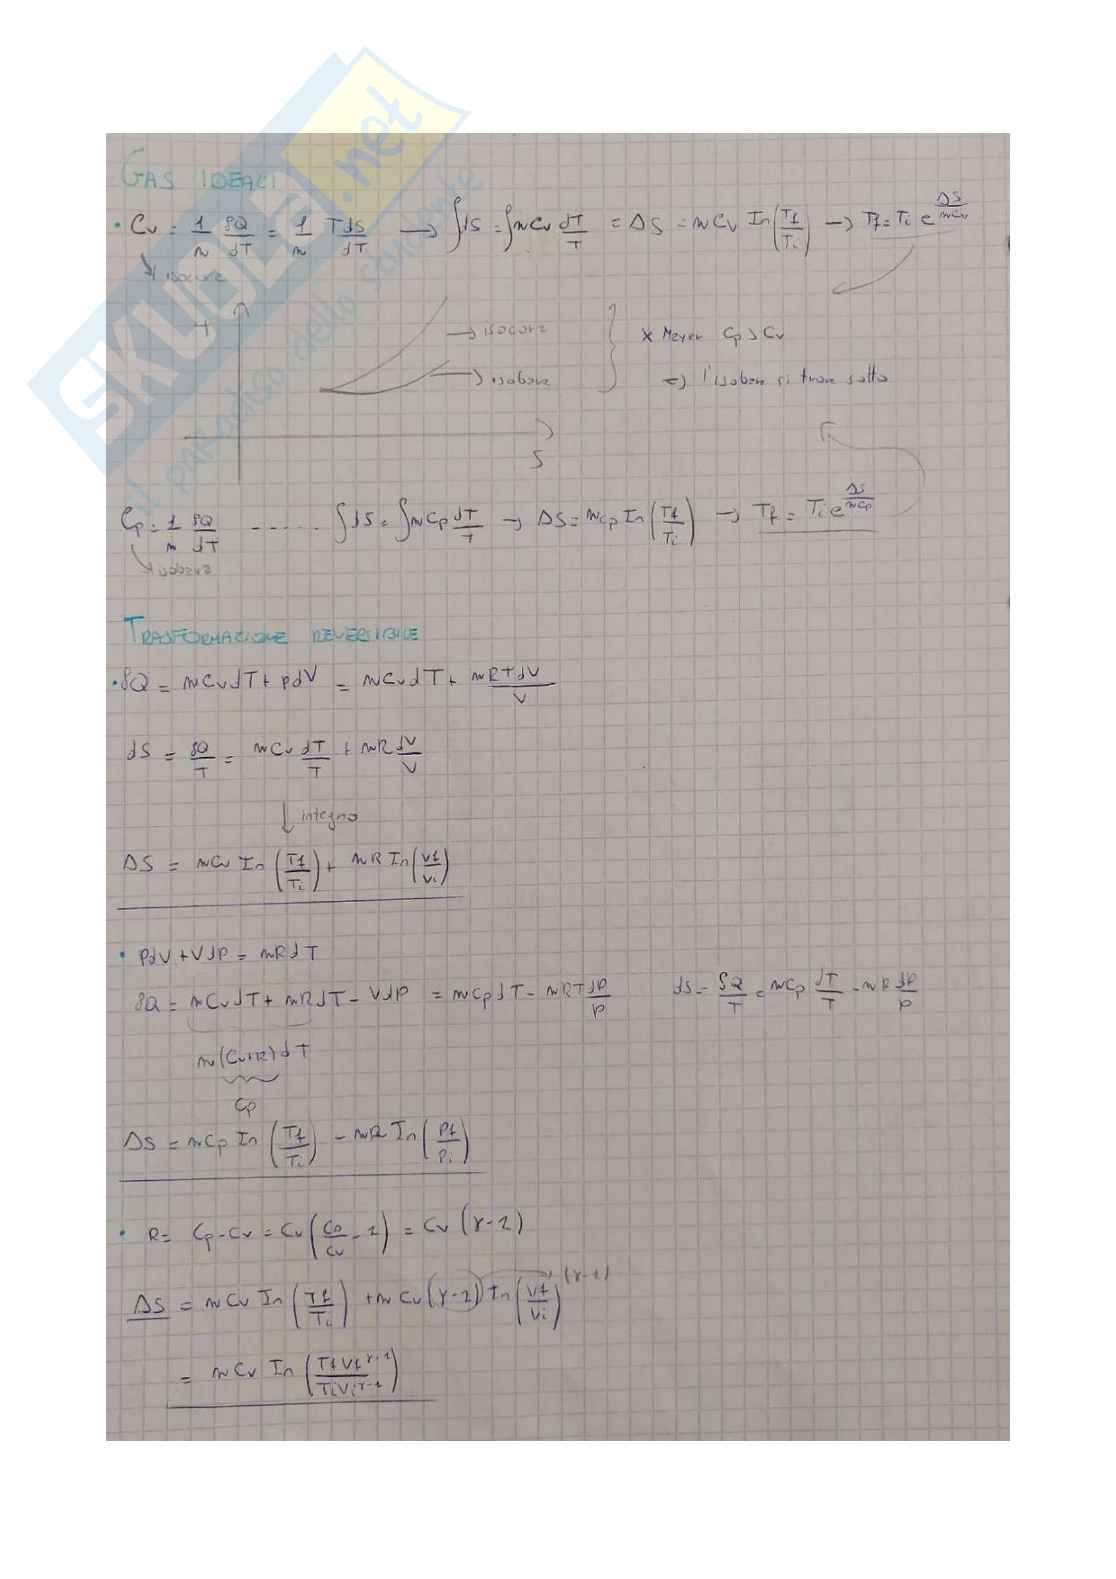 SKUOLA.net
il paradiso dello studente
GAS IDEALI
• Cv = 1/n δQ/dT = 1/n TdS/dT → ∫dS = ∫nCv dT/T = ΔS = nCv ln(Tf/Ti) → Tf = Ti e^(ΔS/nCv)
isocora
T
→ isocora
→ isobara
x Meyer Cp > Cv
⇒ l'isobara si trova sotto
S
Cp = 1/n δQ/dT ------ ∫dS = ∫nCp dT/T → ΔS = nCp ln(Tf/Ti) → Tf = Ti e^(ΔS/nCp)
isobara
TRASFORMAZIONE REVERSIBILE
• δQ = nCvdT + pdV = nCvdT + nRTdV/V
dS = δQ/T = nCv dT/T + nR dV/V
↓ integro
ΔS = nCv ln(Tf/Ti) + nR ln(Vf/Vi)
• PdV + VdP = nRdT
δQ = nCvdT + nRdT - VdP = nCpdT - nRT dP/P dS = δQ/T = nCp dT/T - nR dP/P
n(Cv+R)dT
Cp
ΔS = nCp ln(Tf/Ti) - nR ln(Pf/Pi)
• R = Cp - Cv = Cv(Cp/Cv - 1) = Cv(γ-1)
ΔS = nCv ln(Tf/Ti) + nCv(γ-1) ln(Vf/Vi)^(γ-1)
= nCv ln(TfVf^(γ-1)/TiVi^(γ-1))